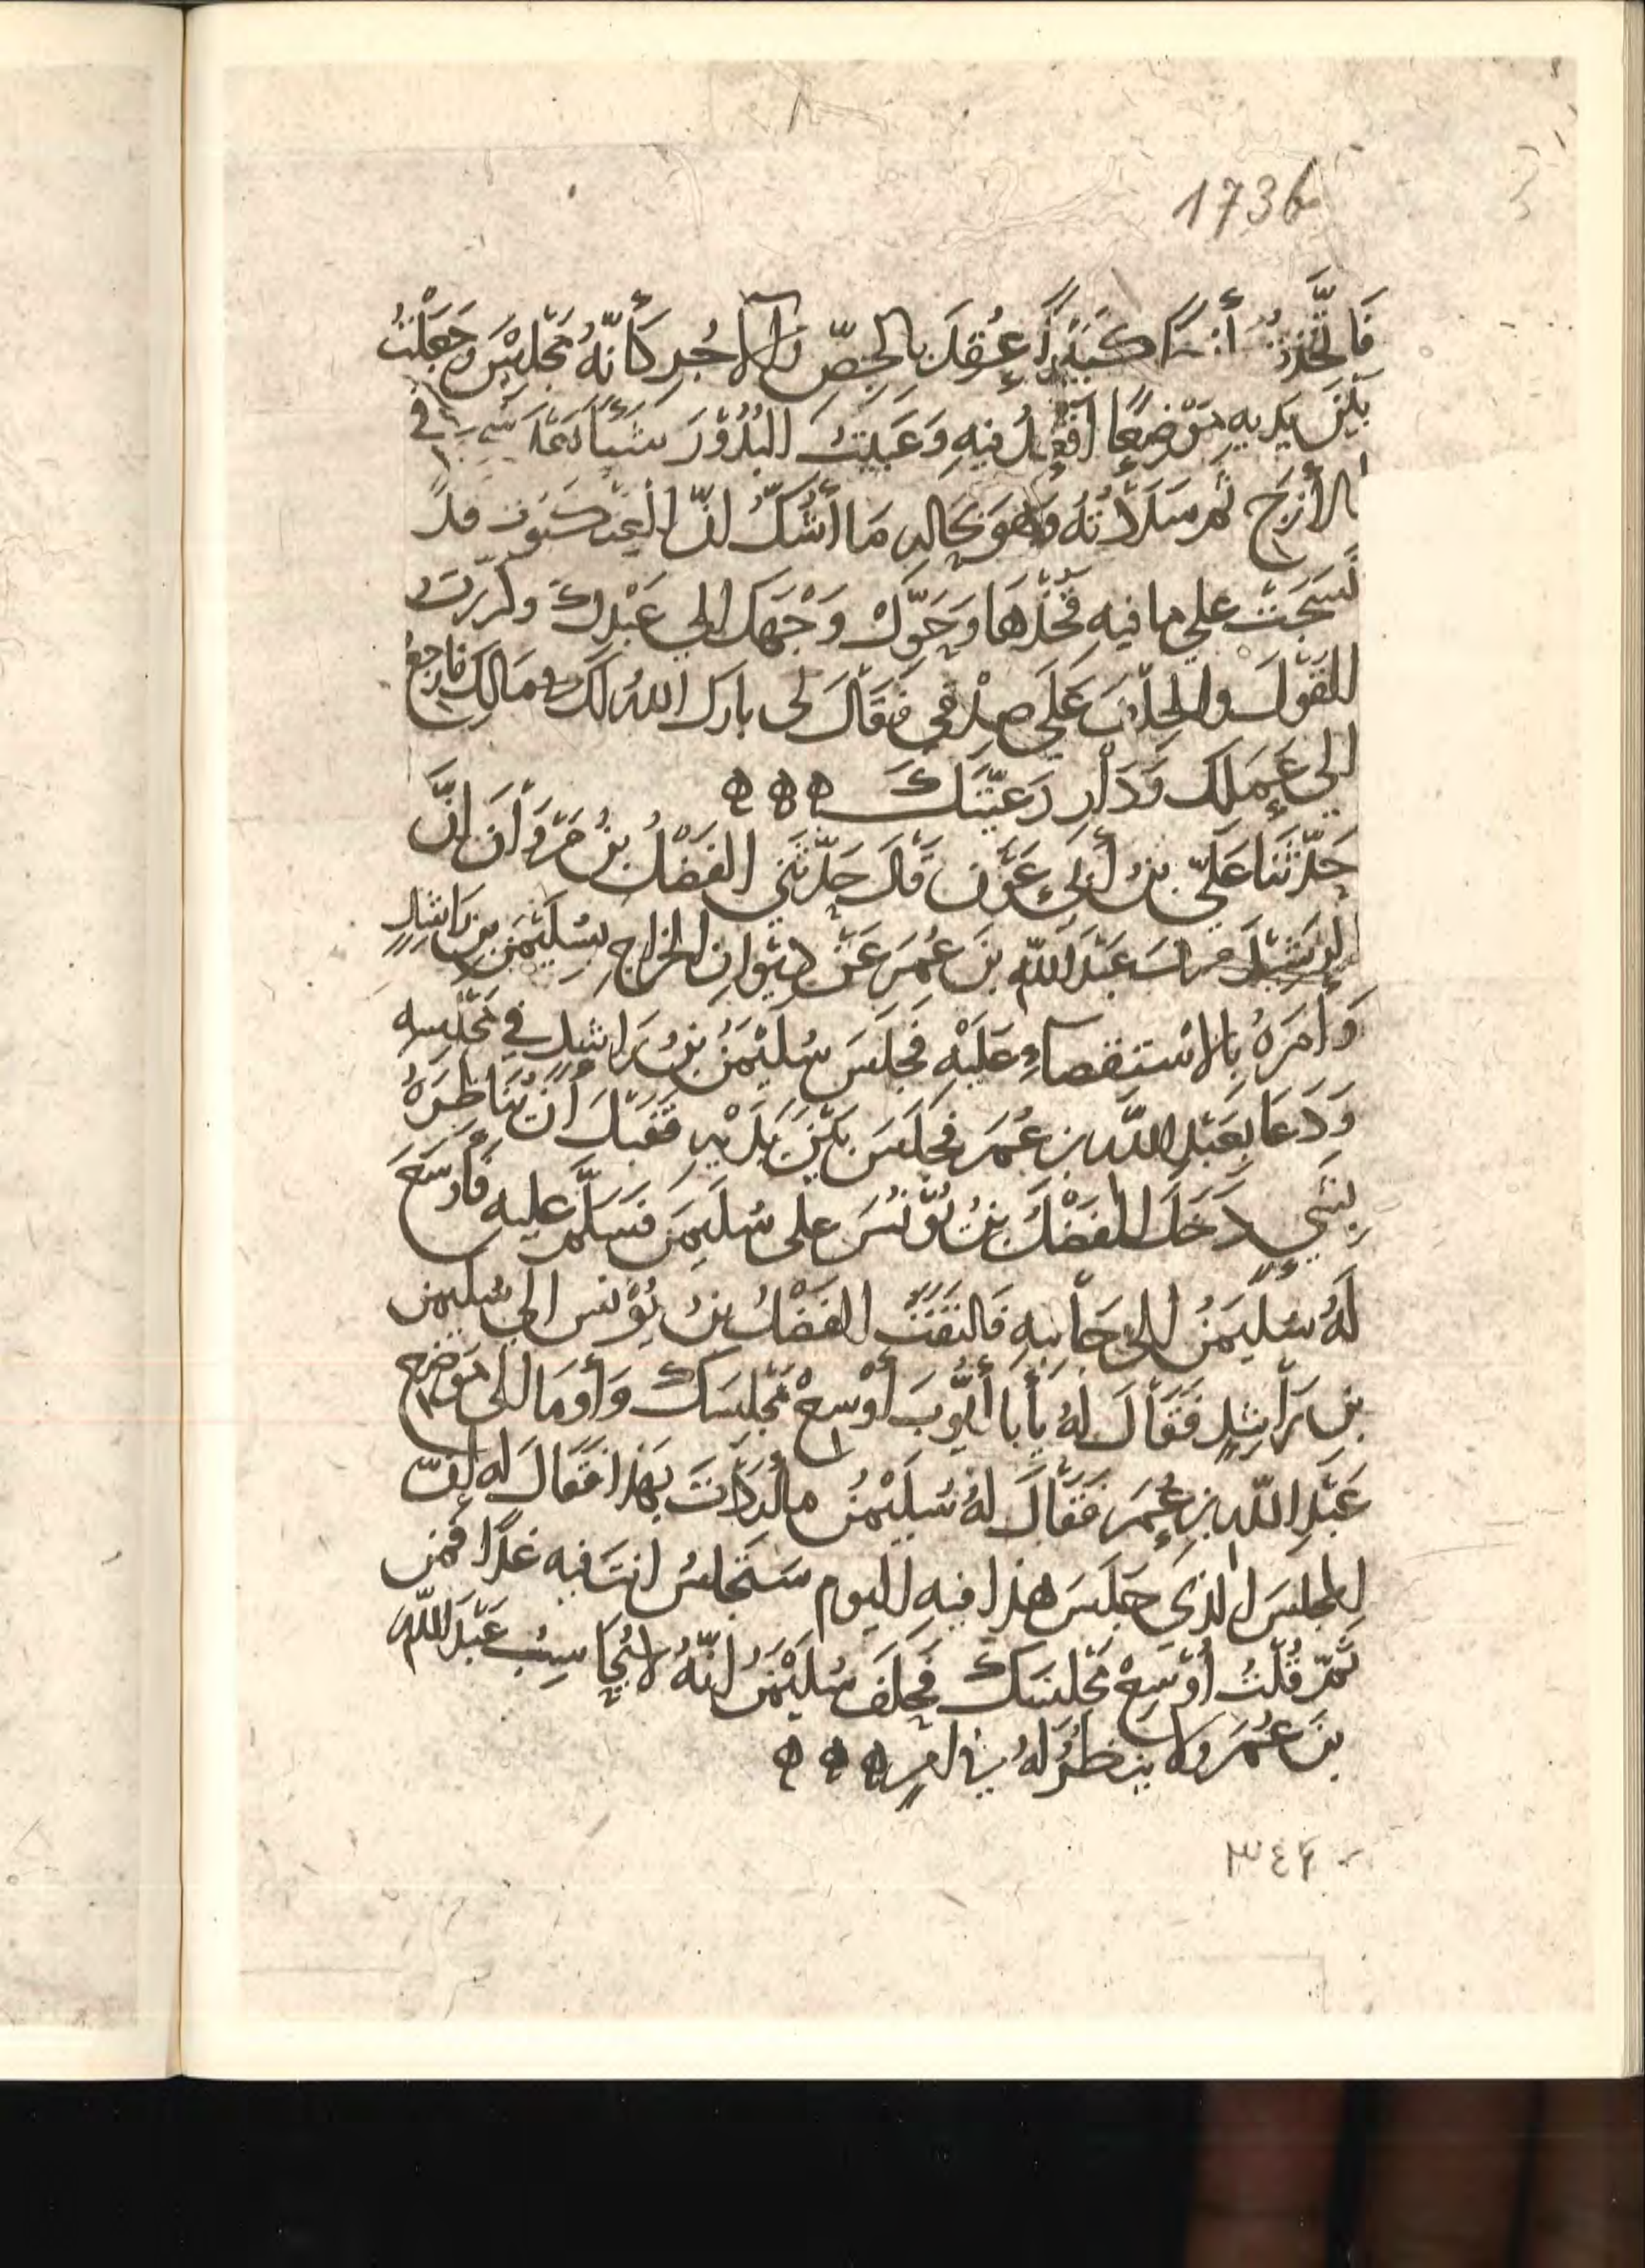 1736
فَاتَّخَذتُ أَزَجًا كَبِيْرًا عُقِدَ بِالجِصِّ وَالآجُرِ كَأَنّهُ مَجْلِسٌ وَجَعَلْتُ
بَيْنَ يَدَيهِ مَوْضِعًا أَقْعُدُ فيهِ وَعَبَّيتُ البُدُوْرَ شَيْأً في
الأزَجِ ثُم مَلَأْتُهُ وَهُوَ بِحَالِهِ مَا أَشُكُّ انّ العنكبوت قد
نَسَجَتْ على ما فيهِ فَخُذْهَا وَحَوِّلْ وَجْهَكَ الى عَبْدِكَ وكرّرتُ
القَوْلَ والحلْفَ عَلَى صِدْقي فَقَالَ لى بارك اللهُ لَكَ في مَالِكَ فارجِعْ
الى عَمَلِكَ وَدَارِ رَعِيّتَكَ ه ه ه
حَدَّثَنَا عَلَيّ بنُ أَبي عَوْن قَالَ حَدّثَنِي الفَضْلُ بنُ مَرْوَانَ انَّ
الرَشِيْدَ عَبْدَ اللّه بنَ عُمَرَ عَنْ دِيْوانِ الخراجِ بِسُلَيْمٰنَ بنِ رَاشِدٍ
وَأمَرَهُ بِالاسْتِقصَاءِ عَلَيْهِ فَجَلَسَ سُلَيْمٰنُ بنُ رَاشِدٍ في مَجْلِسِه
وَدَعَا بِعَبْدِ اللّه بن عُمَرَ فجَلَسَ بَيْنَ يَدَيْهِ فَقَبْلَ أَنْ يُنَاظِرَهُ
بِشَيءٍ دَخَلَ الفَضْلُ بنُ يُوْنُسَ على سُلَيمٰنَ فَسَلّمَ عليه فَأَوْسَعَ
لَهُ سُلَيمٰنُ الى جَانِبِهِ فَالتَفَتَ الفَضْلُ بنُ يُوْنس الى سُليمٰن
بن رَاشِدٍ فَقَالَ لَهُ يأَبا أَيُّوبَ أَوْسِعْ مَجْلِسَكَ وَأَومَا الى مَوْضِعِ
عَبْدِ اللّه بن عُمَرَ فَقَالَ لهُ سُلَيْمٰنُ ما أَرَدْتَ بِهَذا فَقَالَ له إنّ
المجلسَ الذى جَلَسَ هذا فيهِ اليوم سَتَجْلسُ انتَ فيه غدًا فمن
ثَمّ قُلْتُ أَوْسِعْ مَجْلسَكَ فَحَلَفَ سُلَيْمٰنُ انّهُ لا يُحَاسِبُ عَبْدَ اللّه
بنَ عُمَرَ ولا ينظُرُ لهُ في امرٍ ه ه ه
٣٤٤